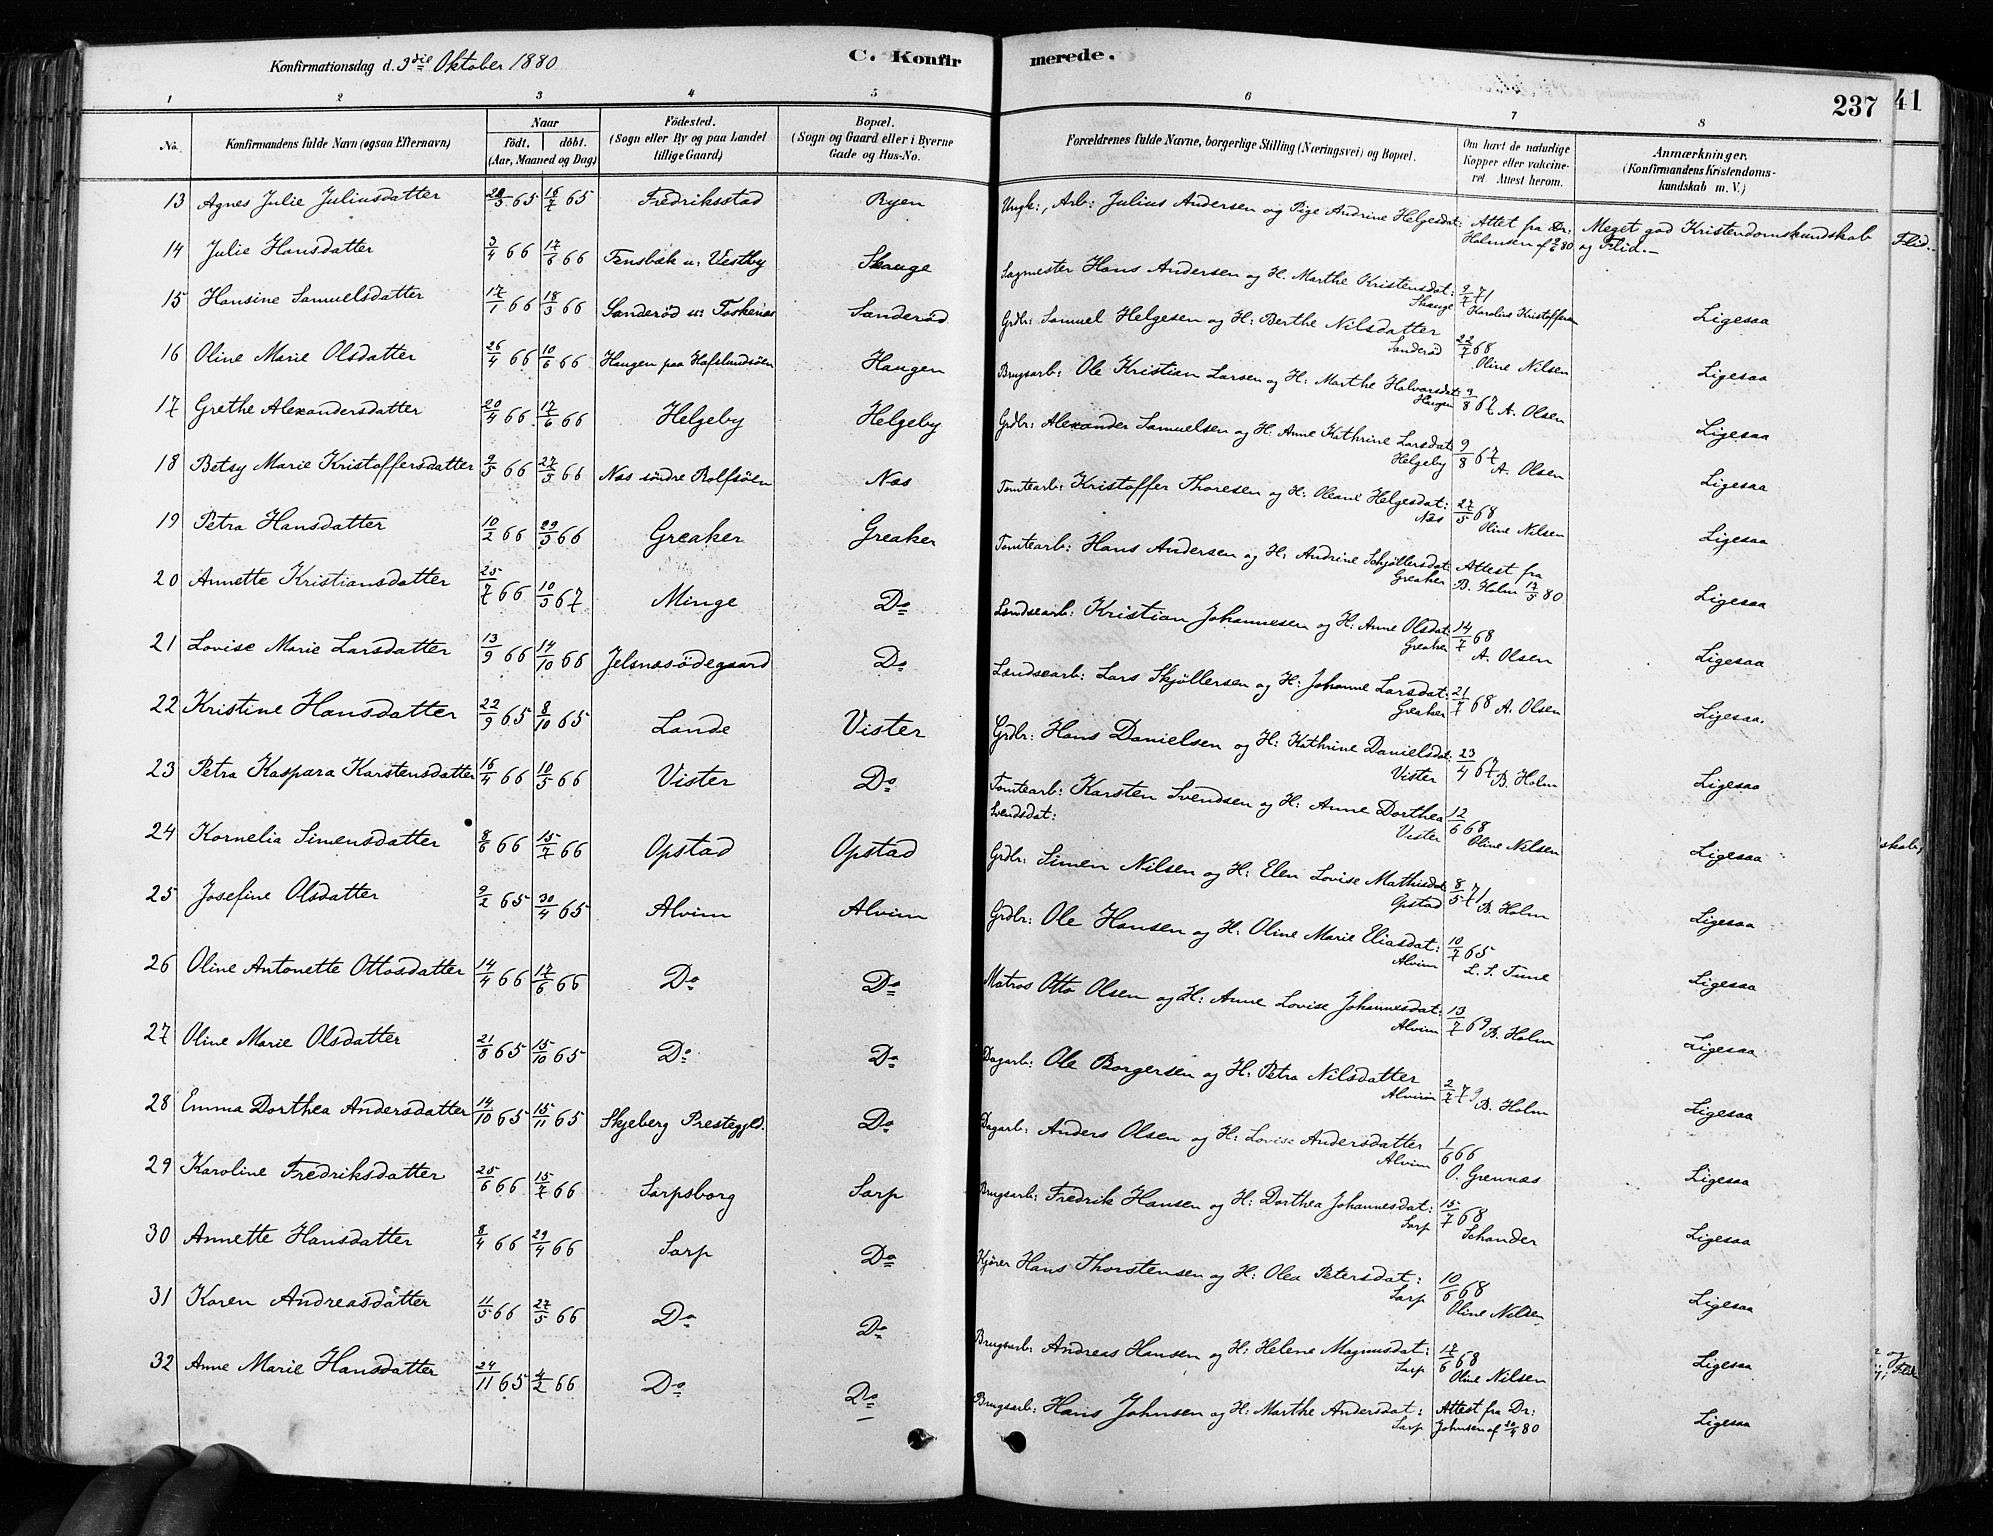 Konfirmationsdag d. 3die Oktober 1880 C. Konfirmerede.
237
41
1 2 3 4 5 6 7 8
No. Konfirmandens fulde Navn (ogsaa Efternavn) Naar født. døbt. (Aar, Maaned og Dag) Fødested. (Sogn eller By og paa Landet tillige Gaard) Bopæl. (Sogn og Gaard eller i Byerne Gade og Hus-No. Forældrenes fulde Navne, borgerlige Stilling (Næringsvei) og Bopæl. Om havt de naturlige Kopper eller vakcineret Attest herom. Anmærkninger. (Konfirmandens Kristendomskundskab m. V.)
13 Agnes Julie Juliusdatter 28/3 65 16/7 65 Fredriksstad Ryen Ungk:, Arb: Julius Andersen og Pige Andrine Helgesdat: Attet fra Dr: Holmsen af 2/6 80 Meget god Kristendomskundskab og Flid.—
14 Julie Hansdatter 3/4 66 17/6 66 Fensbæk u: Vestby Skauge Sagmester Hans Andersen og H. Marthe Kristensdat: Skauge 9/7 71 Karolus Kristoffersen Ligesaa
15 Hansine Samuelsdatter 17/1 66 18/3 66 Sanderød u: Toskenæs Sanderød Grdbr: Samuel Helgesen og H: Berthe Nilsdatter Sanderød 22/7 68 Oline Nilsen Ligesaa
16 Oline Marie Olsdatter 26/4 66 10/6 66 Haugen paa Hafslundsøen Haugen Brugsarb: Ole Kristian Larsen og H: Marthe Halvorsdat: Haugen 9/8 67 A. Olsen Ligesaa
17 Grethe Alexandersdatter 20/4 66 17/6 66 Helgeby Helgeby Grdbr: Alexander Samuelsen og H: Anne Kathrine Larsdat: Helgeby 9/8 67 A. Olsen Ligesaa
18 Betsy Marie Kristoffersdatter 9/5 66 27/5 66 Næs søndre Rolfsøen Næs Tomtearb: Kristoffer Thoresen og H: Oleane Helgesdat: Næs 27/5 68 Oline Nilsen Ligesaa
19 Petra Hansdatter 10/2 66 29/3 66 Greaker Greaker Tomtearb: Hans Andersen og H: Andrine Schjøllersdat: Greaker Attest fra B. Holm 17/5 80 Ligesaa
20 Annette Kristiansdatter 25/7 66 10/3 67 Minge Do Lendsearb: Kristian Johannesen og H: Anne Olsdat: Greaker 14/7 68 A. Olsen Ligesaa
21 Lovise Marie Larsdatter 13/9 66 14/10 66 Jelsnæsødegaard Do Lændsearb: Lars Skjøllersen og H: Johanne Larsdat: Greaker 21/7 68 A. Olsen Ligesaa.
22 Kristine Hansdatter 22/9 65 8/10 65 Lande Vister Grdbr: Hans Danielsen og H: Kathrine Danielsdat: Vister 23/4 67 B. Holm Ligesaa
23 Petra Kaspara Karstensdatter 16/4 66 10/5 66 Vister Do Tomtearb: Karsten Svendsen og H: Anne Dorthea Svendsdat: Vister 12/6 68 Oline Nilsen Ligesaa
24 Kornelia Simensdatter 8/6 66 15/7 66 Opstad Opstad Grdbr: Simen Nilsen og H: Elen Lovise Mathisdat: Opstad 8/5 71 B. Holm Ligesaa
25 Josefine Olsdatter 9/2 65 30/4 65 Alvim Alvim Grdbr: Ole Hansen og H: Oline Marie Eliasdat: Alvim 10/7 65 L. S. Tune Ligesaa
26 Oline Antonette Ottosdatter 14/4 66 17/6 66 Do Do Matros Otto Olsen og H: Anne Lovise Johannesdat: Alvim 13/7 69 B. Holm Ligesaa
27 Oline Marie Olsdatter 21/8 65 15/10 65 Do Do Dagarb: Ole Borgersen og H: Petra Nilsdatter Alvim 2/7 79 B. Holm Ligesaa
28 Emma Dorthea Andersdatter 14/10 65 15/11 65 Skjeberg Prestegjld. Do Dagarb: Anders Olsen og H: Lovise Andersdatter Alvim 1/6 66 O. Grennæs Ligesaa
29 Karoline Fredriksdatter 25/6 66 15/7 66 Sarpsborg Sarp Brugsarb: Fredrik Hansen og H: Dorthea Johannesdat: Sarp 15/7 68 Schander Ligesaa
30 Annette Hansdatter 8/4 66 29/4 66 Sarp Do Kjører Hans Thorstensen og H: Olea Petersdat: Sarp 10/6 68 Oline Nilsen Ligesaa
31 Karen Andreasdatter 11/5 66 27/5 66 Do Do Brugsarb: Andreas Hansen og H: Helene Magnusdat: Sarp 17/6 68 Oline Nilsen Ligesaa
32 Anne Marie Hansdatter 24/11 65 4/2 66 Do Do Brugsarb: Hans Johnsen og H: Marthe Andersdat: Sarp Attest fra Dr: Johnsen af 20/4 80 Ligesaa
Flid.
skab,